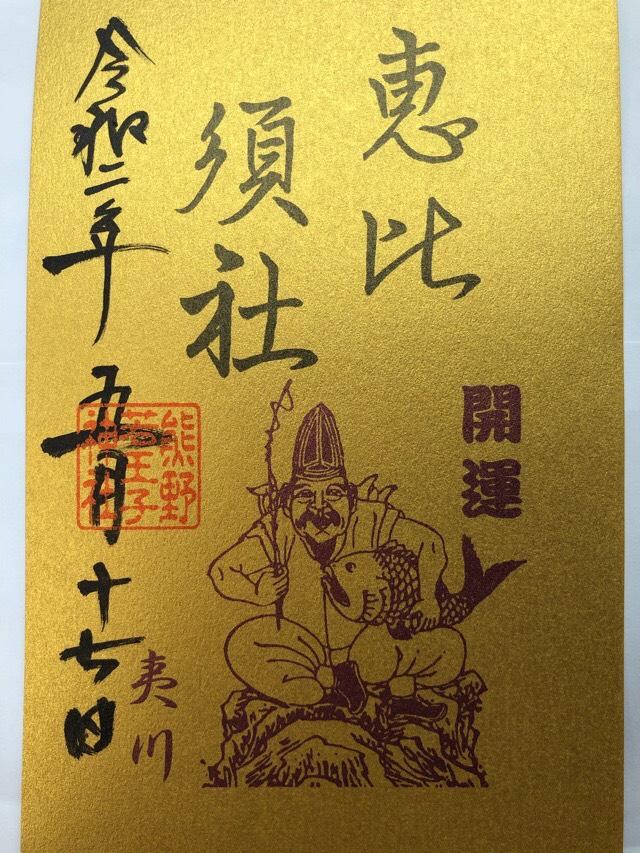 開運
恵比
須社
夷川
令和二年五月十七日
熊野
若王子
神社